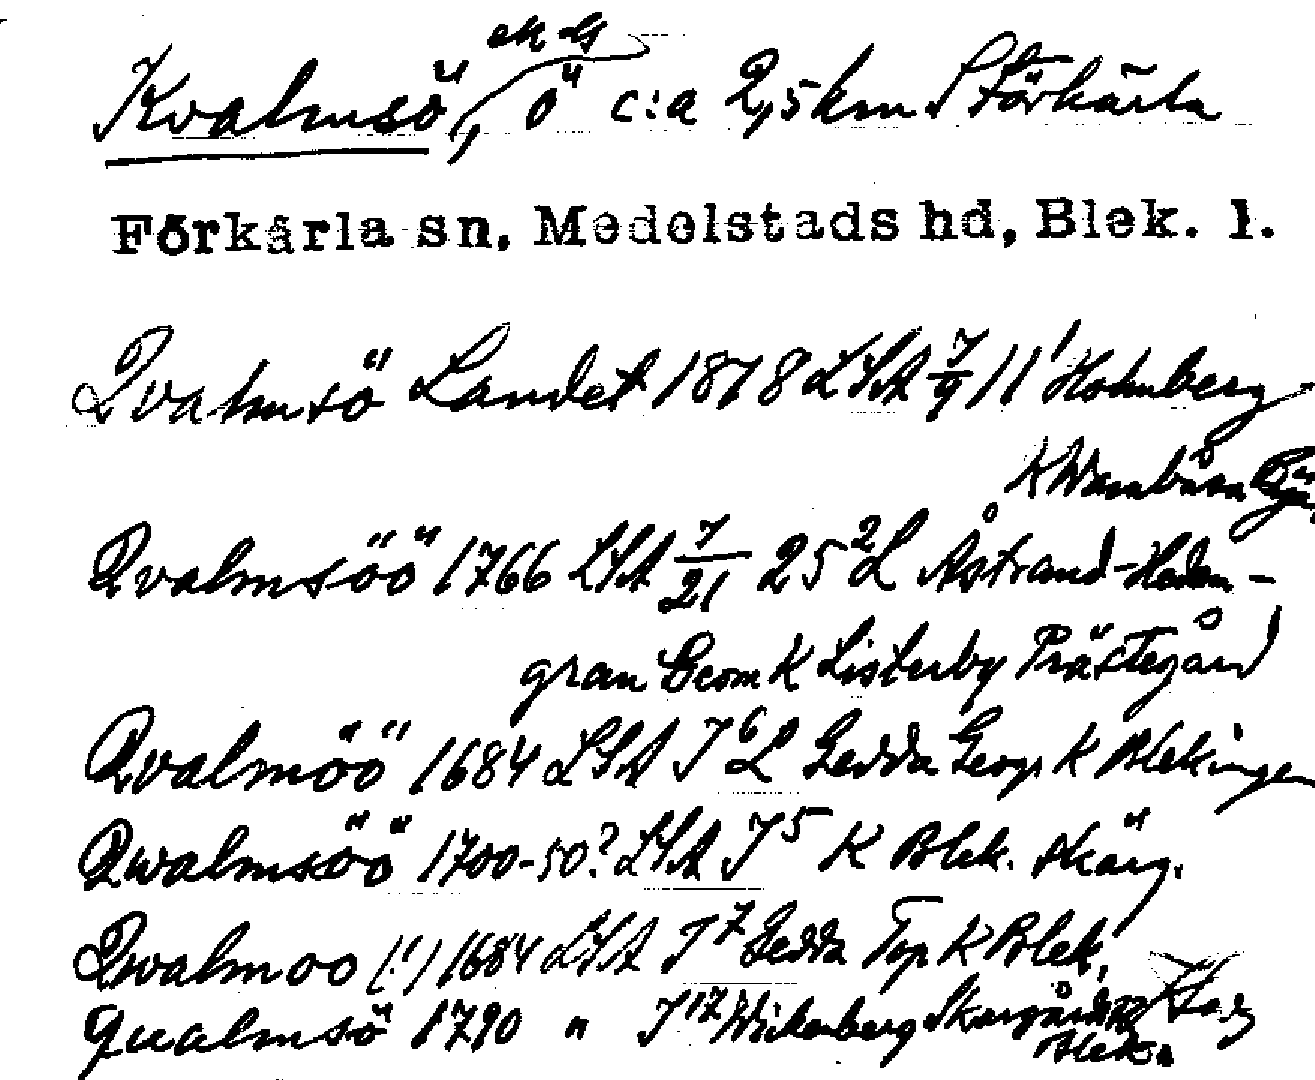 ek bl
Kvalmsö, ö c:a 2,5 km S Förkärla
Förkärla sn, Medelstads hd, Blek. l.
Qvalmsö Landet 1878 LSA 7/9 11 Holmberg
K
Qvalmsöö 1766 LSA 7/21 25² L Åstrand-Heden-
gran Geom K Listerby Prästegård
Qvalmöö 1684 LSA J⁶ L Gedda Geogr K Blekingen
Qwalmsöö 1700-50? LSA J⁵ K Blek. skärg.
Qwalmoo (!) 1684 LSA J⁷ Gedda Top K Blek.
Qualmsö 1790 " J¹⁷ Wickenberg
Blek.